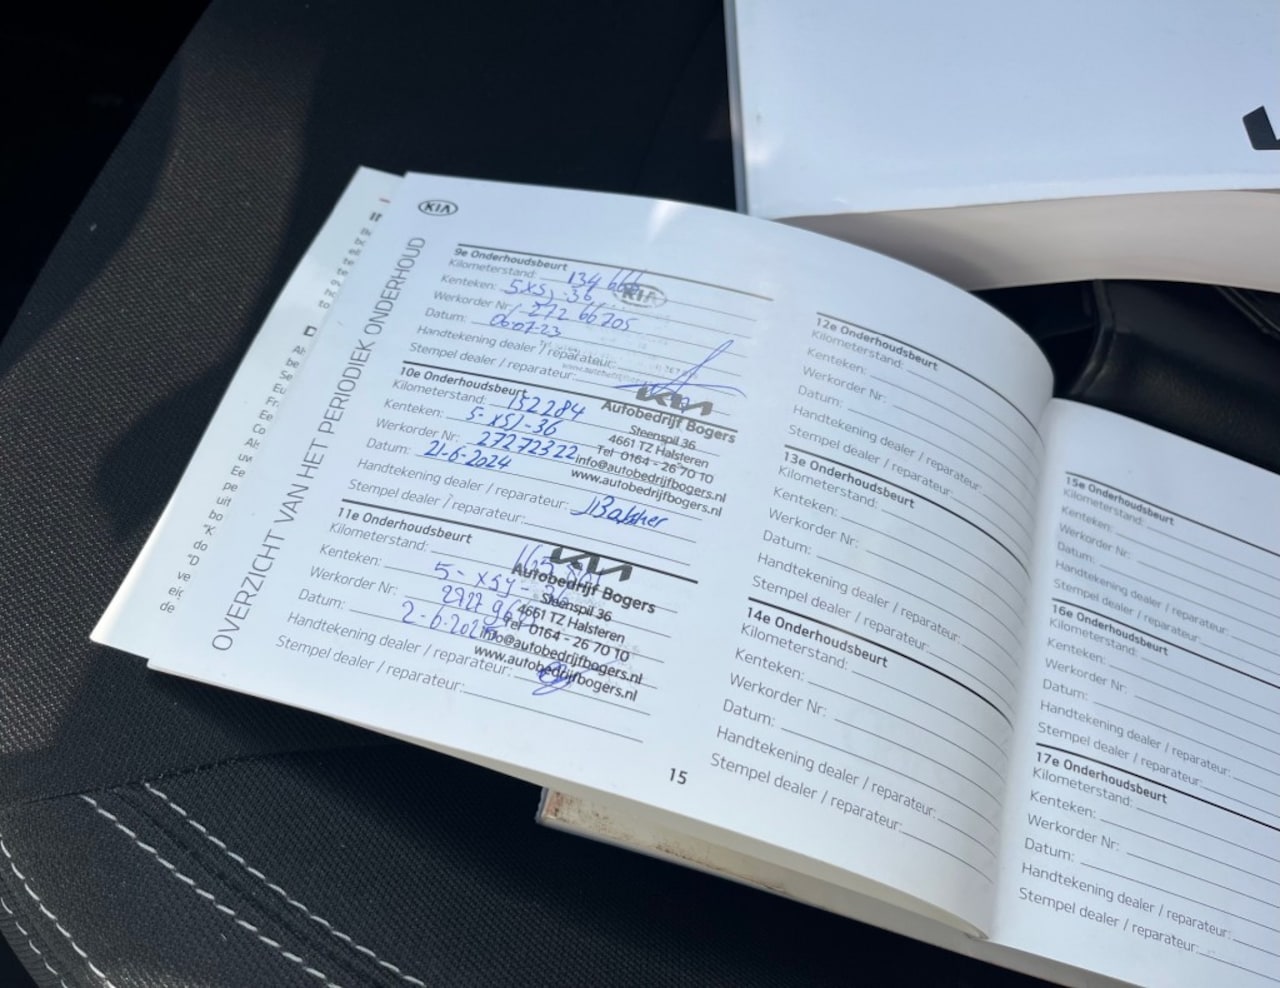 KIA
OVERZICHT VAN HET PERIODIEK ONDERHOUD
9e Onderhoudsbeurt
Kilometerstand: 134
Kenteken:
KIA
Werkorder Nr: 272 66705
Datum: 06-07-23
Handtekening dealer / reparateur:
Stempel dealer / reparateur:
10e Onderhoudsbeurt
Kilometerstand: 152284
Kenteken: 5-XSJ-36
Werkorder Nr: 27272322
Datum: 21-6-2024
Handtekening dealer / reparateur:
Stempel dealer / reparateur:
KIA
Autobedrijf Bogers
Steenspil 36
4661 TZ Halsteren
Tel 0164 - 26 70 10
info@autobedrijfbogers.nl
www.autobedrijfbogers.nl
11e Onderhoudsbeurt
Kilometerstand:
Kenteken:
Werkorder Nr:
Datum:
Handtekening dealer / reparateur:
Stempel dealer / reparateur:
KIA
Autobedrijf Bogers
Steenspil 36
4661 TZ Halsteren
Tel 0164 - 26 70 10
info@autobedrijfbogers.nl
www.autobedrijfbogers.nl
15
12e Onderhoudsbeurt
Kilometerstand:
Kenteken:
Werkorder Nr:
Datum:
Handtekening dealer / reparateur:
Stempel dealer / reparateur:
13e Onderhoudsbeurt
Kilometerstand:
Kenteken:
Werkorder Nr:
Datum:
Handtekening dealer / reparateur:
Stempel dealer / reparateur:
14e Onderhoudsbeurt
Kilometerstand:
Kenteken:
Werkorder Nr:
Datum:
Handtekening dealer / reparateur:
Stempel dealer / reparateur:
15e Onderhoudsbeurt
Kilometerstand:
Kenteken:
Werkorder Nr:
Datum:
Handtekening dealer / reparateur:
Stempel dealer / reparateur:
16e Onderhoudsbeurt
Kilometerstand:
Kenteken:
Werkorder Nr:
Datum:
Handtekening dealer / reparateur:
Stempel dealer / reparateur:
17e Onderhoudsbeurt
Kilometerstand:
Kenteken:
Werkorder Nr:
Datum:
Handtekening dealer / reparateur:
Stempel dealer / reparateur: